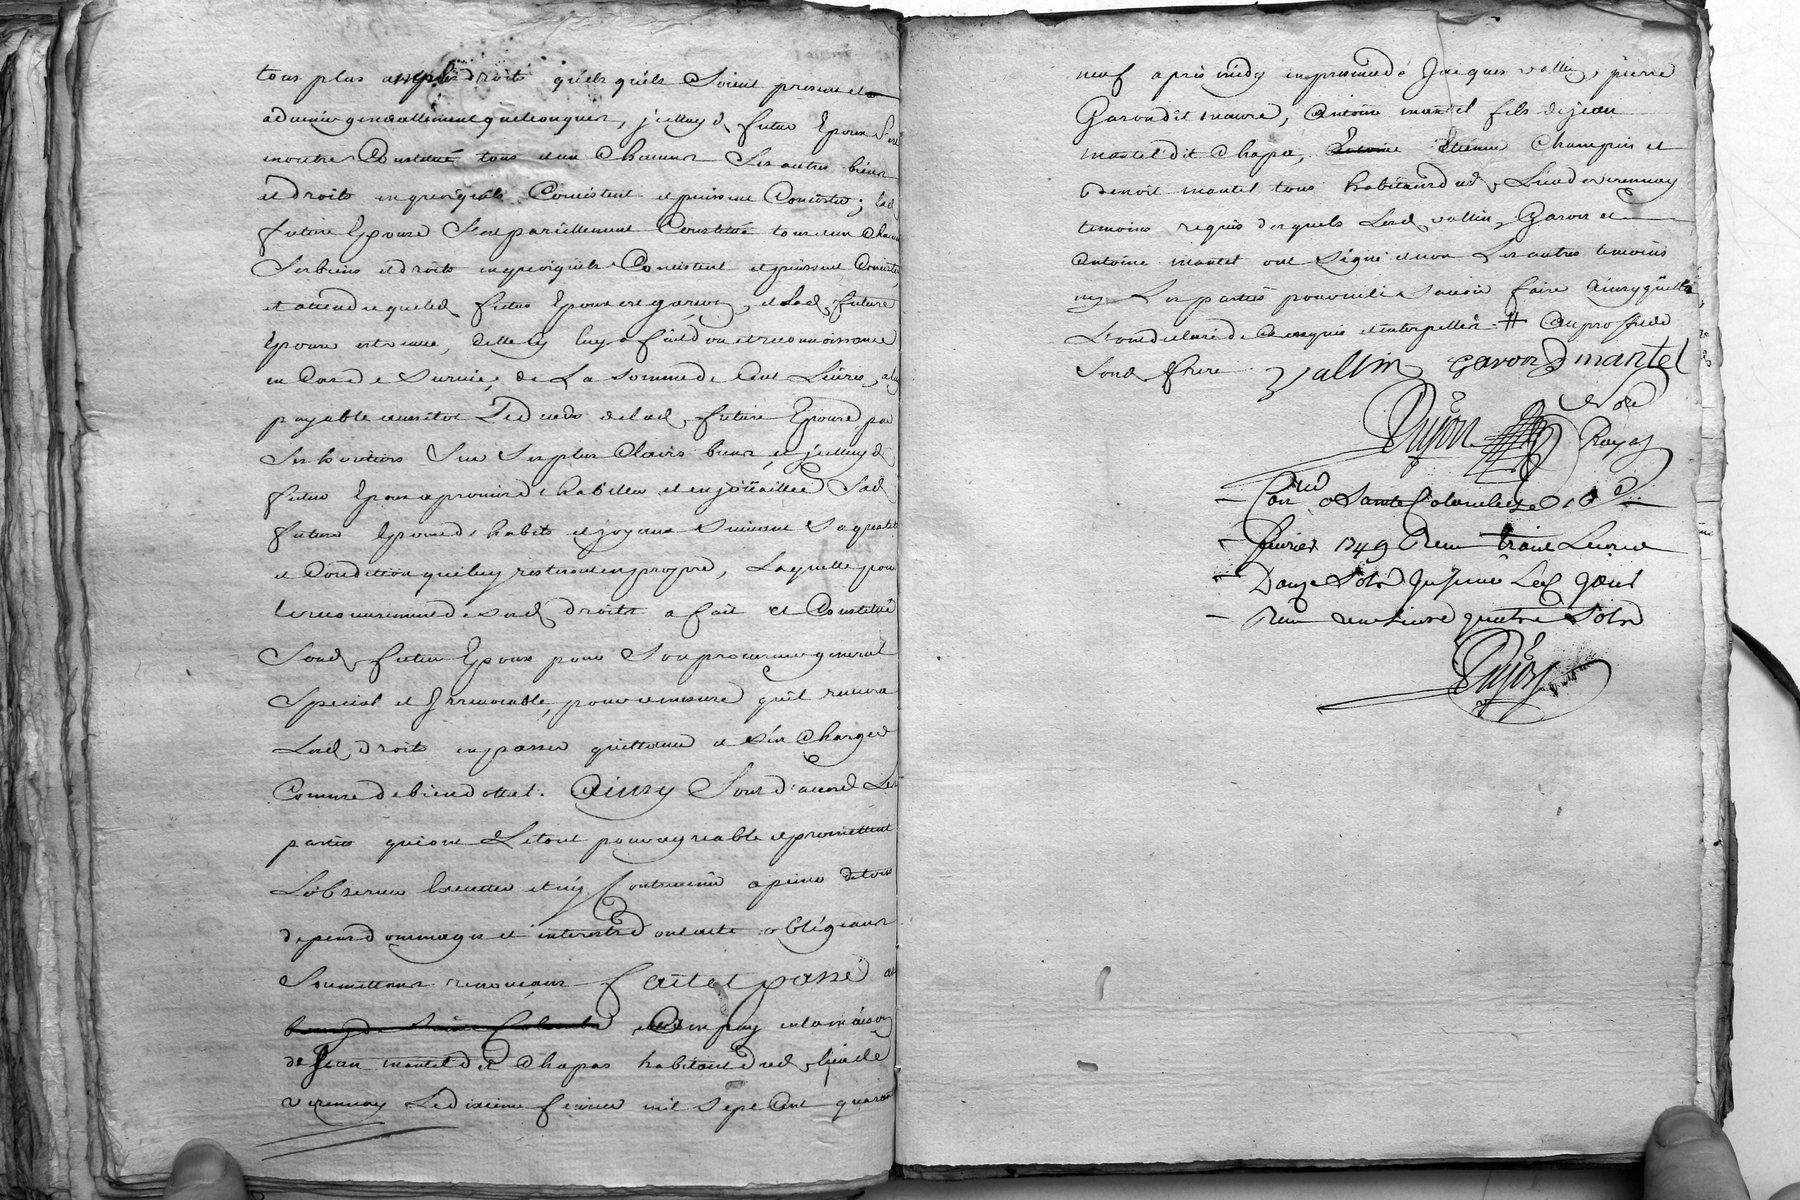 tous plus amples droits quels quils soient presents et
advenir generallement quelconques, jcelluy d. futur Epoux s'est
en outre Constitué tous et un Chacuns ses autres biens
et droits en quoy quils Consistent et puissent Consister; lad.
future Epouse s'est pareillement Constitué tous et un Chacun
ses biens et droits en quoi quils Consistent et puissent Consister,
et attendu que led. futur Epoux est garçon, et lad. future
Epouse est veuve, Celle cy luy a fait don et reconnoissance
en Cas de survie, de La somme de Cent Livres, a luy
payable aussitot le deceds de lad. future Epouse par
ses heritiers sur ses plus Clairs biens, et jcelluy d.
futur Epoux a promis d'habiller et enjoüailler sad.
future Epouse d'habits et joyaux suivant sa qualité
et Condition qui luy resteront en propre, Laquelle pour
le recouvrement de sesd. droits a fait et Constitué
sond. futur Epoux pour son procureur general
special et Jrrevocable, pour a mesure qu'il recevra
Lesd. droits en passer quittance et s'en Charger
Comme de bien dottal. Ainsy sont d'accord Les
parties qui ont Le tout pour agreable et promettent
L'observer Executer et n'y Contrevenir a peine de tous
depens dommages et interests dont acte obligeans
soumettans renonçans fait et passé au
bourg de Sainte Colombe en la maison
de Jean mantel dit Chapas habitant dud. lieu de
verennay Le dixieme fevrier mil sept Cent quarante
neuf après midy en presence de Jacques vallin, pierre
Garon dit maure, Antoine mantel fils de jean
mantel dit Chapa, Antoine Etienne Champin et
benoit mantel tous habitans dud. Lieu de verennay
temoins requis desquels Lesd. vallin, Garon et
Antoine mantel ont signé et non Les autres temoins
ny Les parties pour ne le sçavoir faire ainsy qu'ils
L'ont declaré de Ce enquis et interpellés # Au proffit de
sond. frere
Vallin garon A mantel
Dujon Nore
Royal
Conlle a Sainte Colombe le 10e
fevrier 1749 Reçu treize Livres
Douze sols Jnsinué Led. jour
Reçu une Livre quatre sols
Dujon